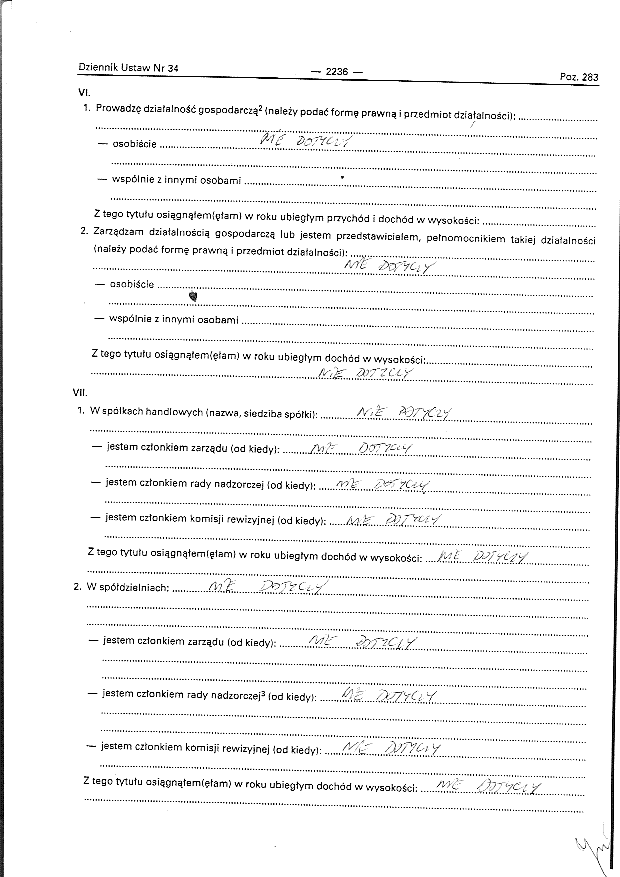 Dziennik Ustaw Nr 34 — 2236 — Poz. 283
VI.
1. Prowadzę działalność gospodarczą² (należy podać formę prawną i przedmiot działalności):
— osobiście NIE DOTYCZY
— wspólnie z innymi osobami
Z tego tytułu osiągnąłem(ęłam) w roku ubiegłym przychód i dochód w wysokości:
2. Zarządzam działalnością gospodarczą lub jestem przedstawicielem, pełnomocnikiem takiej działalności
(należy podać formę prawną i przedmiot działalności):
NIE DOTYCZY
— osobiście
— wspólnie z innymi osobami
Z tego tytułu osiągnąłem(ęłam) w roku ubiegłym dochód w wysokości:
NIE DOTYCZY
VII.
1. W spółkach handlowych (nazwa, siedziba spółki): NIE DOTYCZY
— jestem członkiem zarządu (od kiedy): NIE DOTYCZY
— jestem członkiem rady nadzorczej (od kiedy): NIE DOTYCZY
— jestem członkiem komisji rewizyjnej (od kiedy): NIE DOTYCZY
Z tego tytułu osiągnąłem(ęłam) w roku ubiegłym dochód w wysokości: NIE DOTYCZY
2. W spółdzielniach: NIE DOTYCZY
— jestem członkiem zarządu (od kiedy): NIE DOTYCZY
— jestem członkiem rady nadzorczej³ (od kiedy): NIE DOTYCZY
— jestem członkiem komisji rewizyjnej (od kiedy): NIE DOTYCZY
Z tego tytułu osiągnąłem(ęłam) w roku ubiegłym dochód w wysokości: NIE DOTYCZY